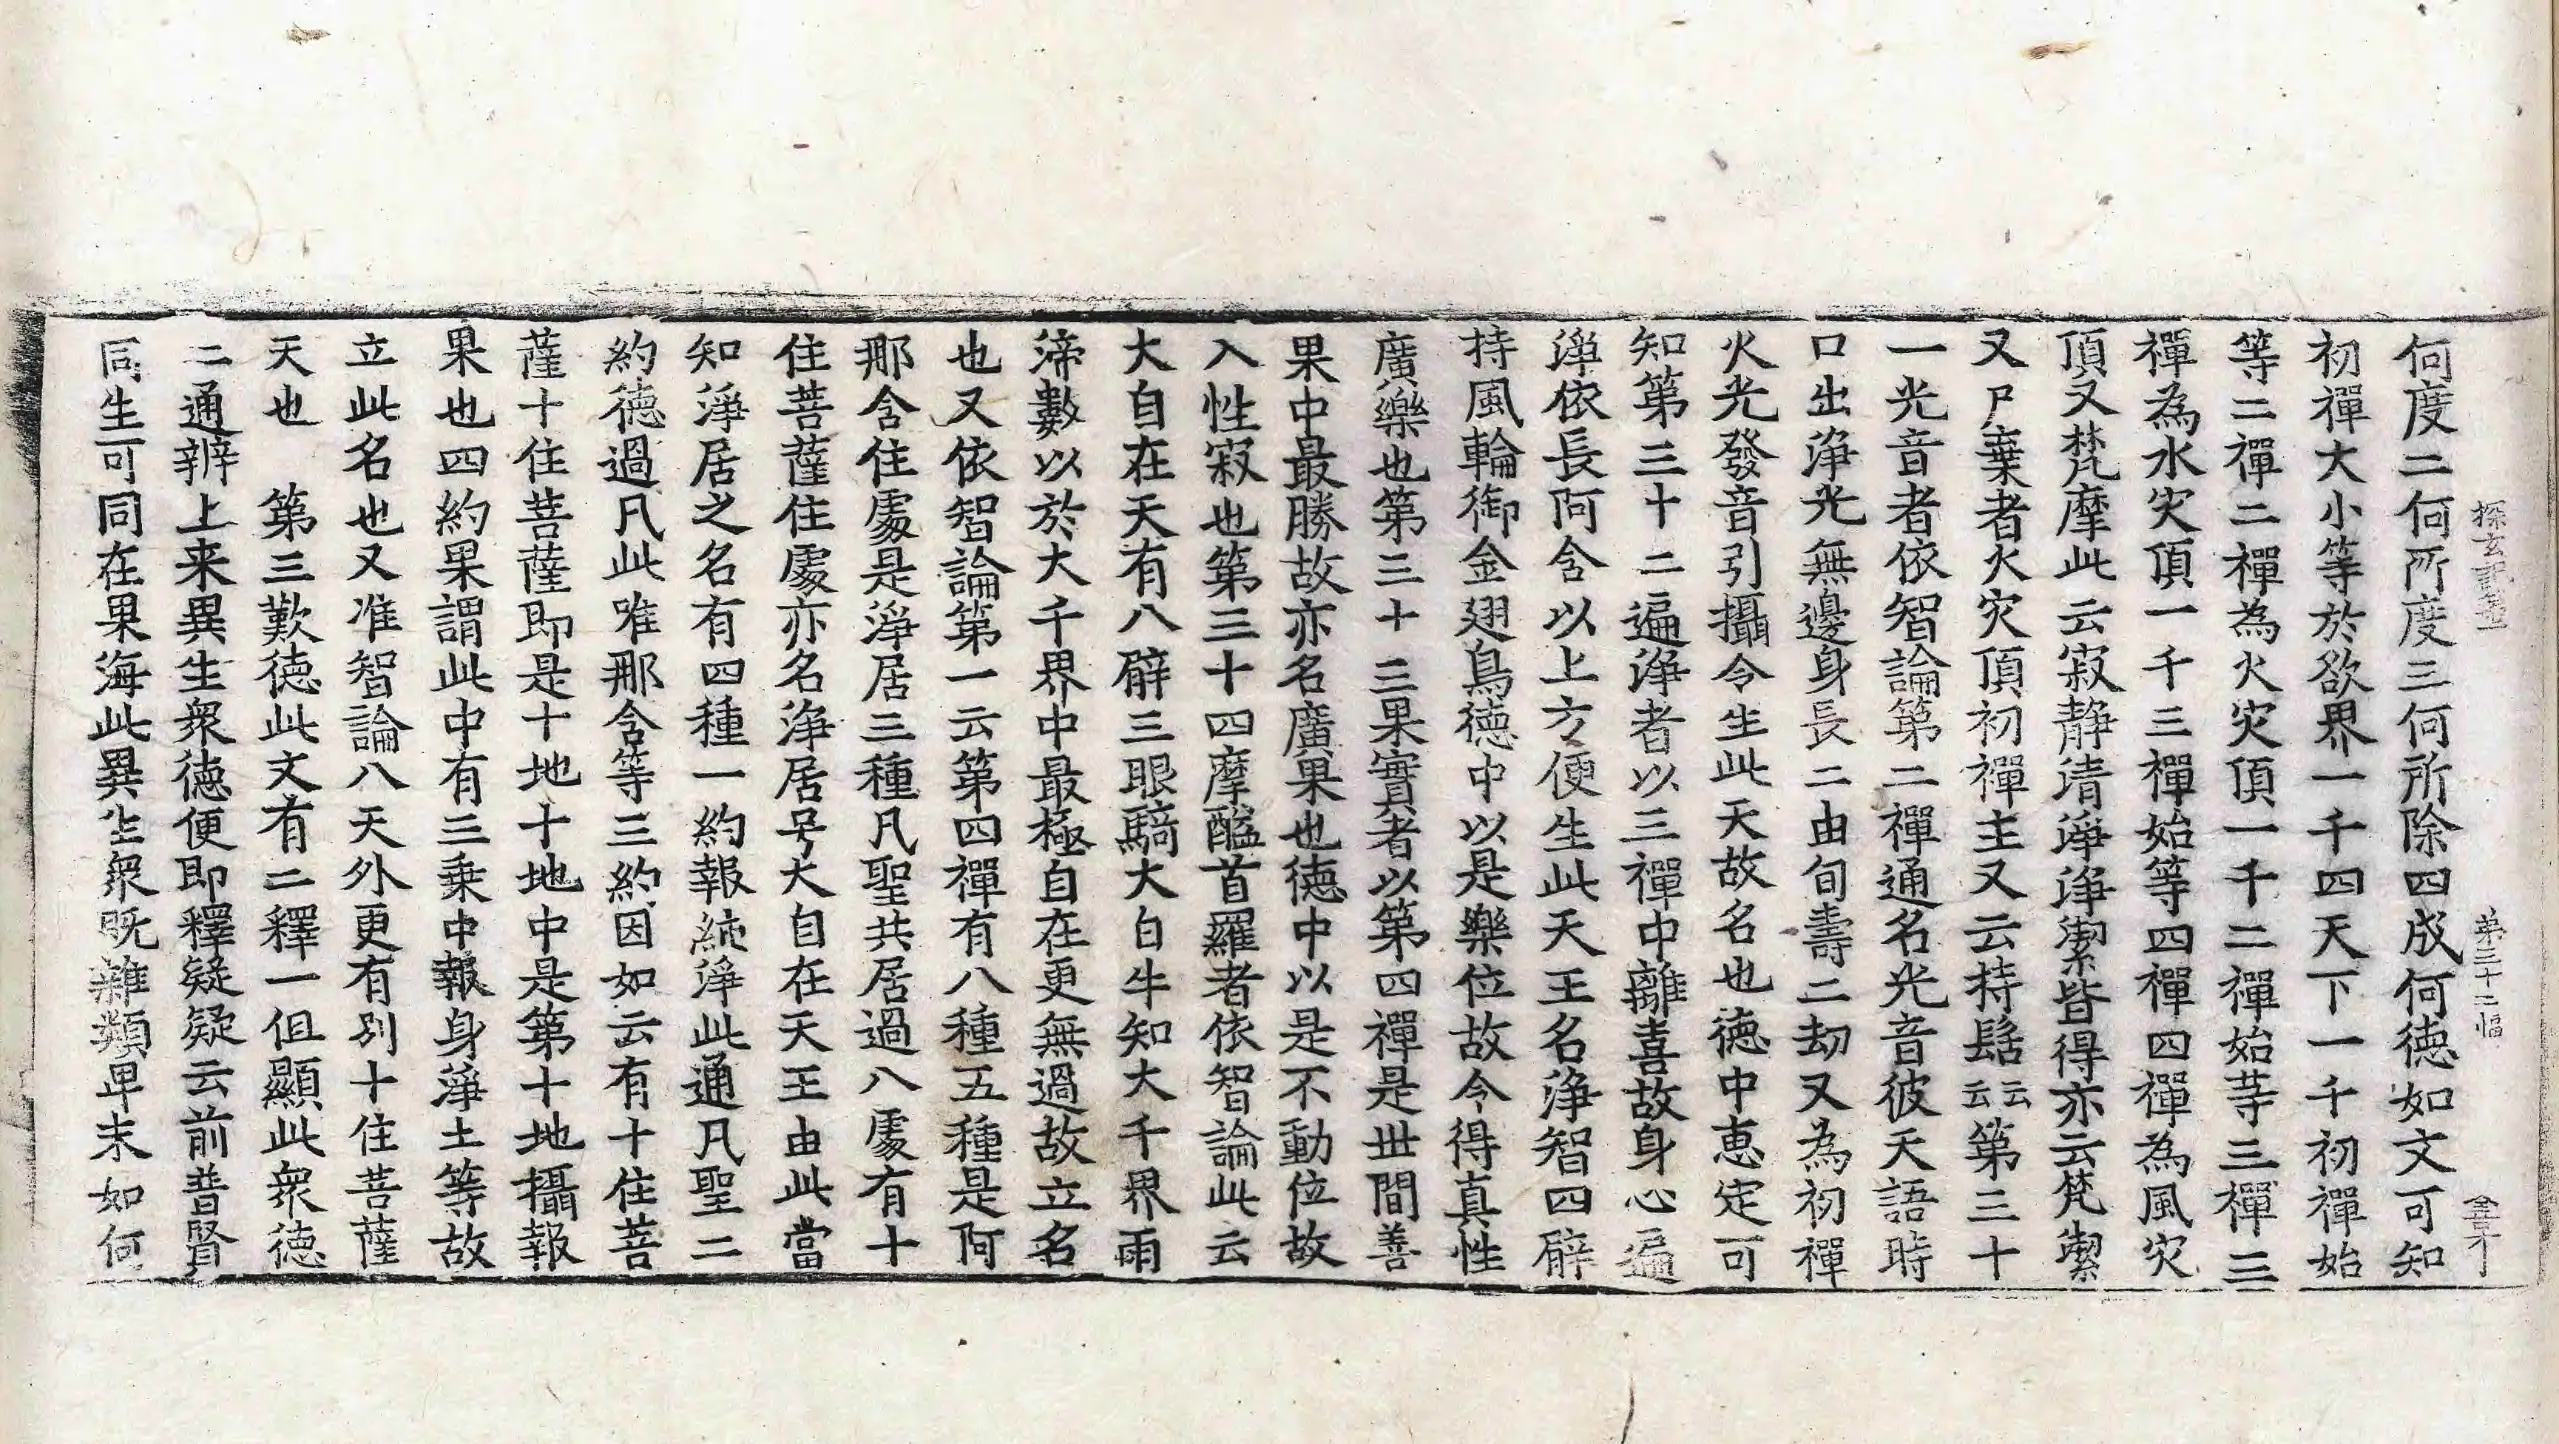 探玄記卷二 第二十二幅
何度二何所度三何所除四成何徳如文可知
初禪大小等於欲界一千四天下一千初禪始
等二禪二禪為火灾頂一千二禪始等三禪三
禪為水灾頂一千三禪始等四禪四禪為風灾
頂又梵摩此云寂静清淨淨潔皆得亦云梵潔
又尸棄者火灾頂初禪主又云持髻云云第三十
一光音者依智論第二禪通名光音彼天語時
口出淨光無邊身長二由旬壽二劫又為初禪
火光發音引攝令生此天故名也徳中恵定可
知第三十二遍淨者以三禪中離喜故身心遍
淨依長阿含以上方便生此天王名淨智四臂
持風輪御金翅鳥徳中以是樂位故今得真性
廣樂也第三十三果實者以第四禪是世間善
果中最勝故亦名廣果也徳中以是不動位故
入性寂也第三十四摩醯首羅者依智論此云
大自在天有八臂三眼騎大白牛知大千界雨
渧數以於大千界中最極自在更無過故立名
也又依智論第一云第四禪有八種五種是阿
那含住處是淨居三種凡聖共居過八處有十
住菩薩住處亦名淨居号大自在天王由此當
知淨居之名有四種一約報純淨此通凡聖二
約徳過凡此唯那含等三約因如云有十住菩
薩十住菩薩即是十地十地中是第十地攝報
果也四約果謂此中有三乗中報身淨土等故
立此名也又准智論八天外更有別十住菩薩
天也 第三歎徳此文有二釋一但顯此衆徳
二通辨上来異生衆徳便即釋疑疑云前普賢
同生可同在果海此異生衆既雜類卑末如何